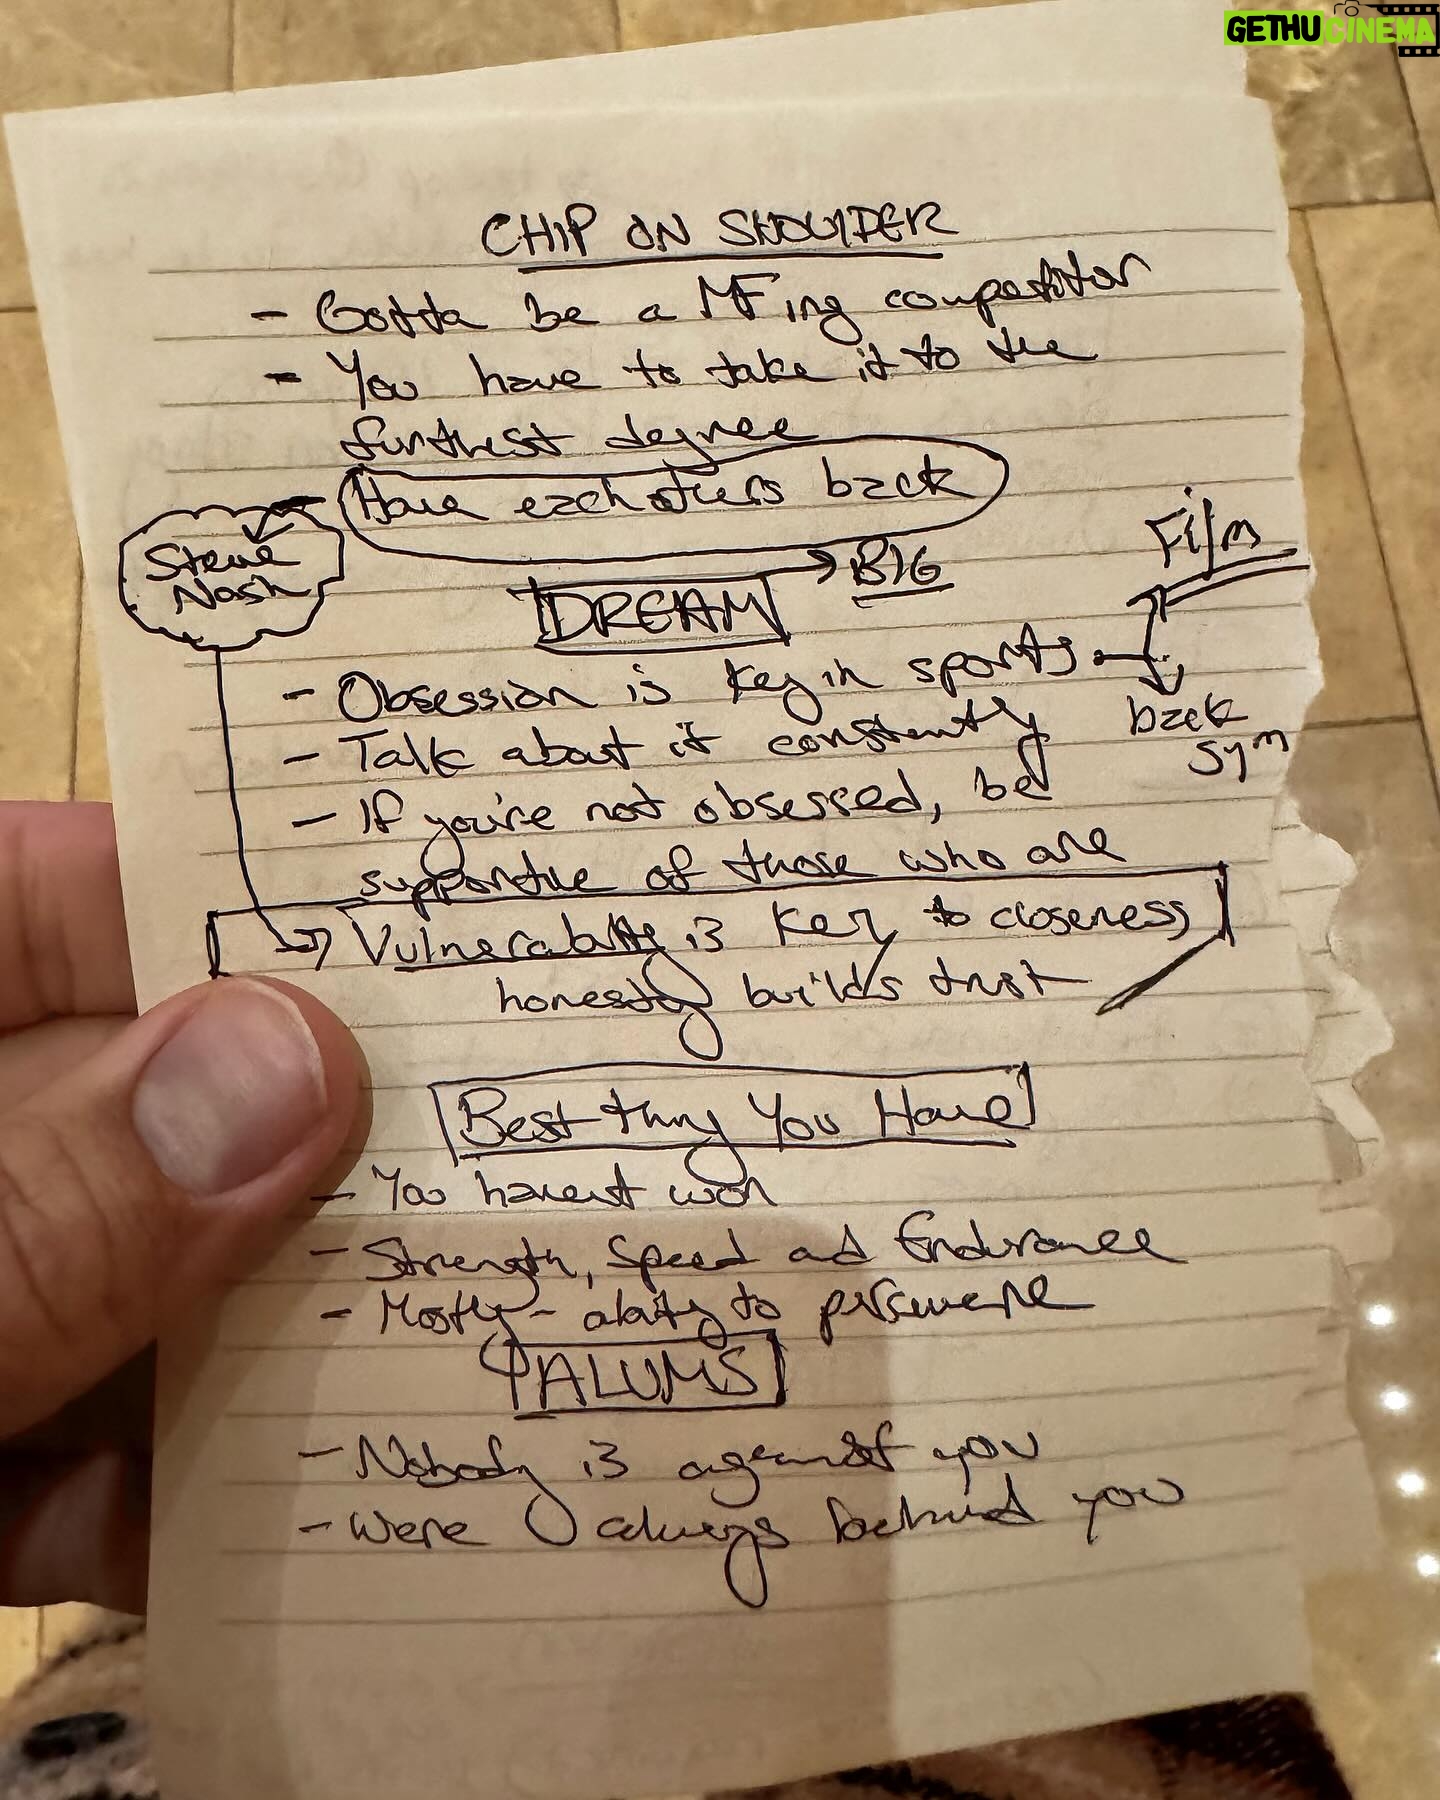 GETHUCINEMA
CHIP ON SHOULDER
- Gotta be a MFing competitor
- You have to take it to the
furthest degree
Have eachothers back
Steve
Nash
DREAM
BIG
Film
- Obsession is key in sports
back
gym
- Talk about it constantly
- If you're not obsessed, be
supportive of those who are
Vulnerability is key to closeness
honesty builds trust
Best thing You Have
- You havent won
- Strength, Speed and Endurance
- Mostly - ability to persevere
ALUMS
- Nobody is against you
- Were always behind you